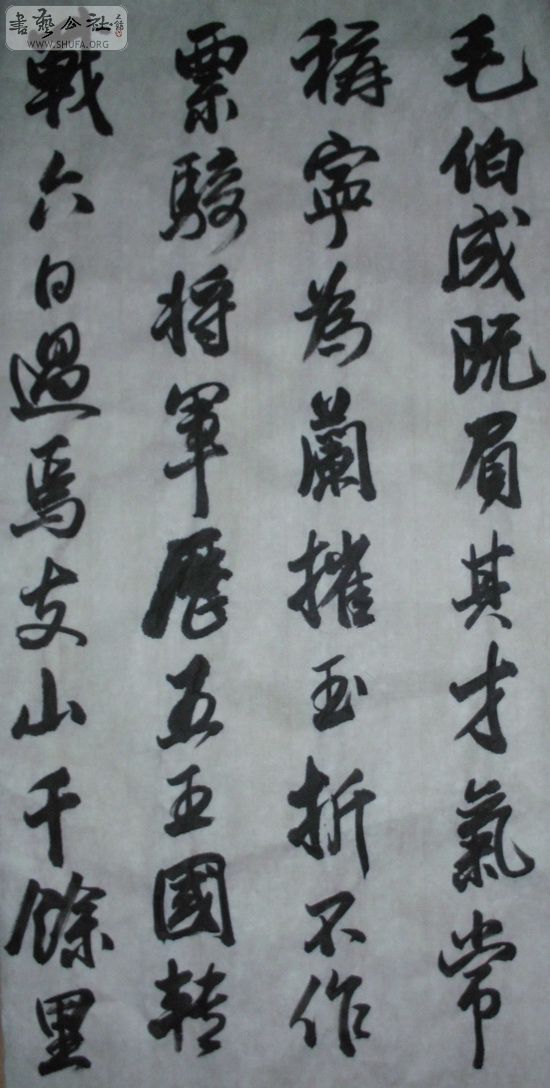 毛伯成既負其才氣常
稱寧為蘭摧玉折不作
票駿将軍歷五王國轉
戰六日過焉支山千餘里
書藝公社
WWW.SHUFA.ORG